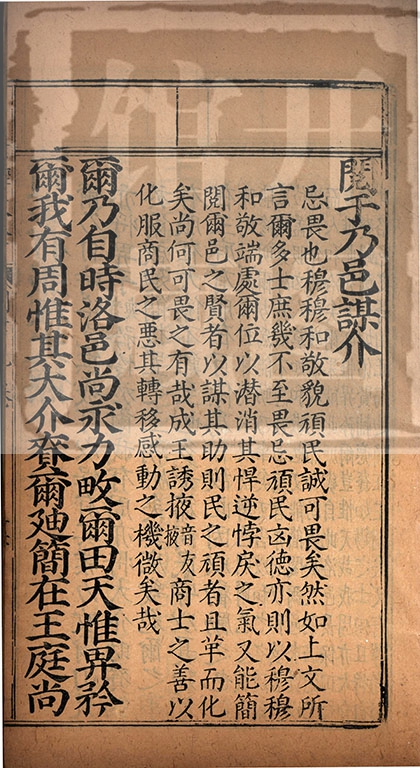 閱于乃邑謀介
忌畏也穆穆和敬貌頑民誠可畏矣然如上文所
言爾多士庶幾不至畏忌頑民凶德亦則以穆穆
和敬端處爾位以潜消其悍逆悖戾之氣又能簡
閱爾邑之賢者以謀其助則民之頑者且革而化
矣尚何可畏之有哉成王誘掖音亦掖商士之善以
化服商民之惡其轉移感動之機微矣哉
爾乃自時洛邑尚永力畋爾田天惟畀矜
爾我有周惟其大介賚爾迪簡在王庭尚